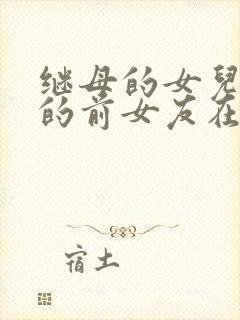 继母的女兒
的前女友在
宿土